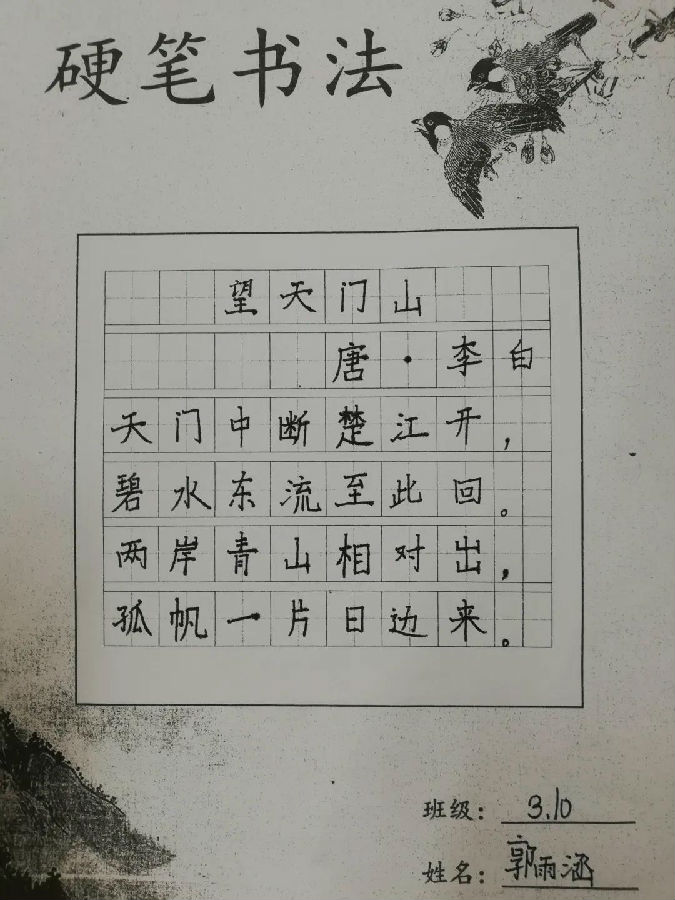 硬笔书法
望天门山
唐·李白
天门中断楚江开，
碧水东流至此回。
两岸青山相对出，
孤帆一片日边来。
班级：3.10
姓名：郭雨涵